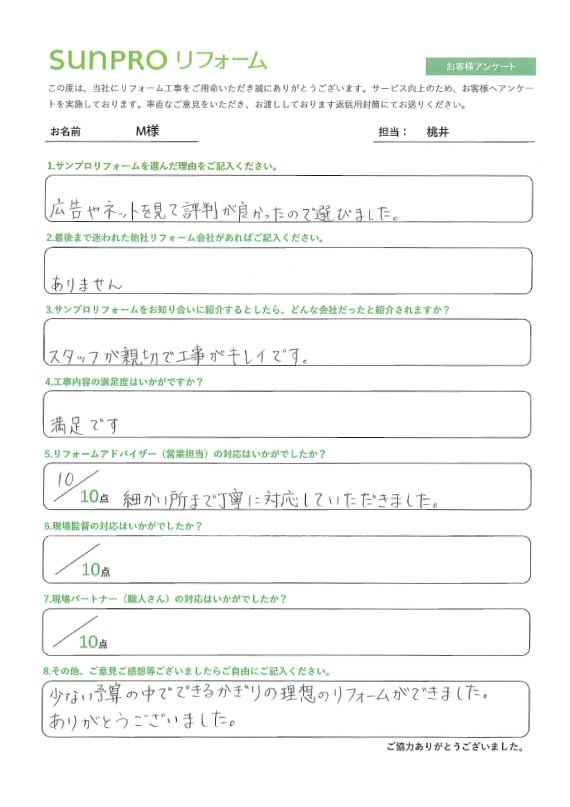 SUNPRO リフォーム
お客様アンケート
この度は、当社にリフォーム工事をご用命いただき誠にありがとうございます。サービス向上のため、お客様へアンケー
トを実施しております。率直なご意見をいただき、お渡ししております返信用封筒にてお送りください。
お名前 M様 担当： 桃井
1.サンプロリフォームを選んだ理由をご記入ください。
広告やネットを見て評判が良かったので選びました。
2.最後まで迷われた他社リフォーム会社があればご記入ください。
ありません
3.サンプロリフォームをお知り合いに紹介するとしたら、どんな会社だったと紹介されますか？
スタッフが親切で工事がキレイです。
4.工事内容の満足度はいかがですか？
満足です
5.リフォームアドバイザー（営業担当）の対応はいかがでしたか？
10/10点 細かい所まで丁寧に対応していただきました。
6.現場監督の対応はいかがでしたか？
/10点
7.現場パートナー（職人さん）の対応はいかがでしたか？
/10点
8.その他、ご意見ご感想等ございましたらご自由にご記入ください。
少ない予算の中でできるかぎりの理想のリフォームができました。
ありがとうございました。
ご協力ありがとうございました。